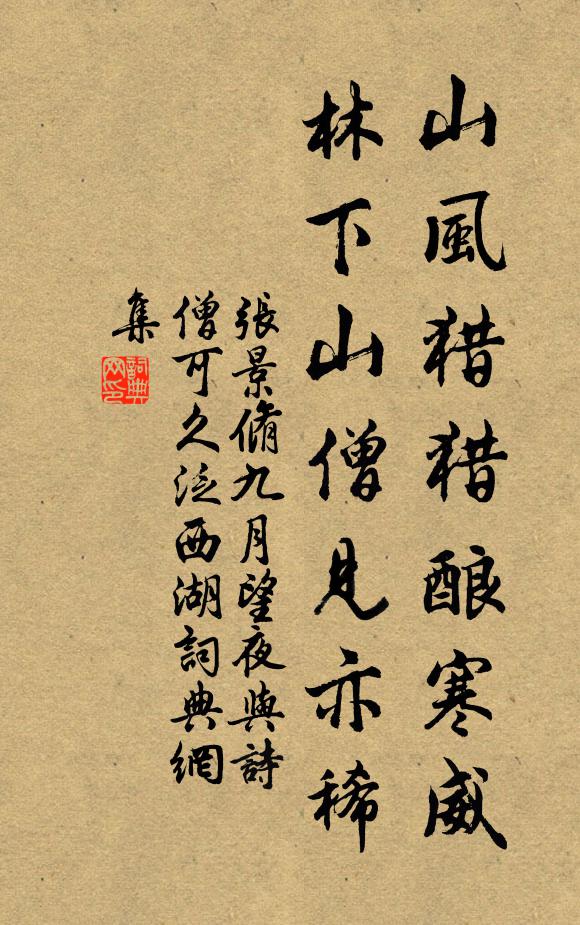 山風猎猎酿寒威
林下山僧見亦稀
張景脩九月望夜與詩
僧可久泛西湖詞典網
集
詞典
网印